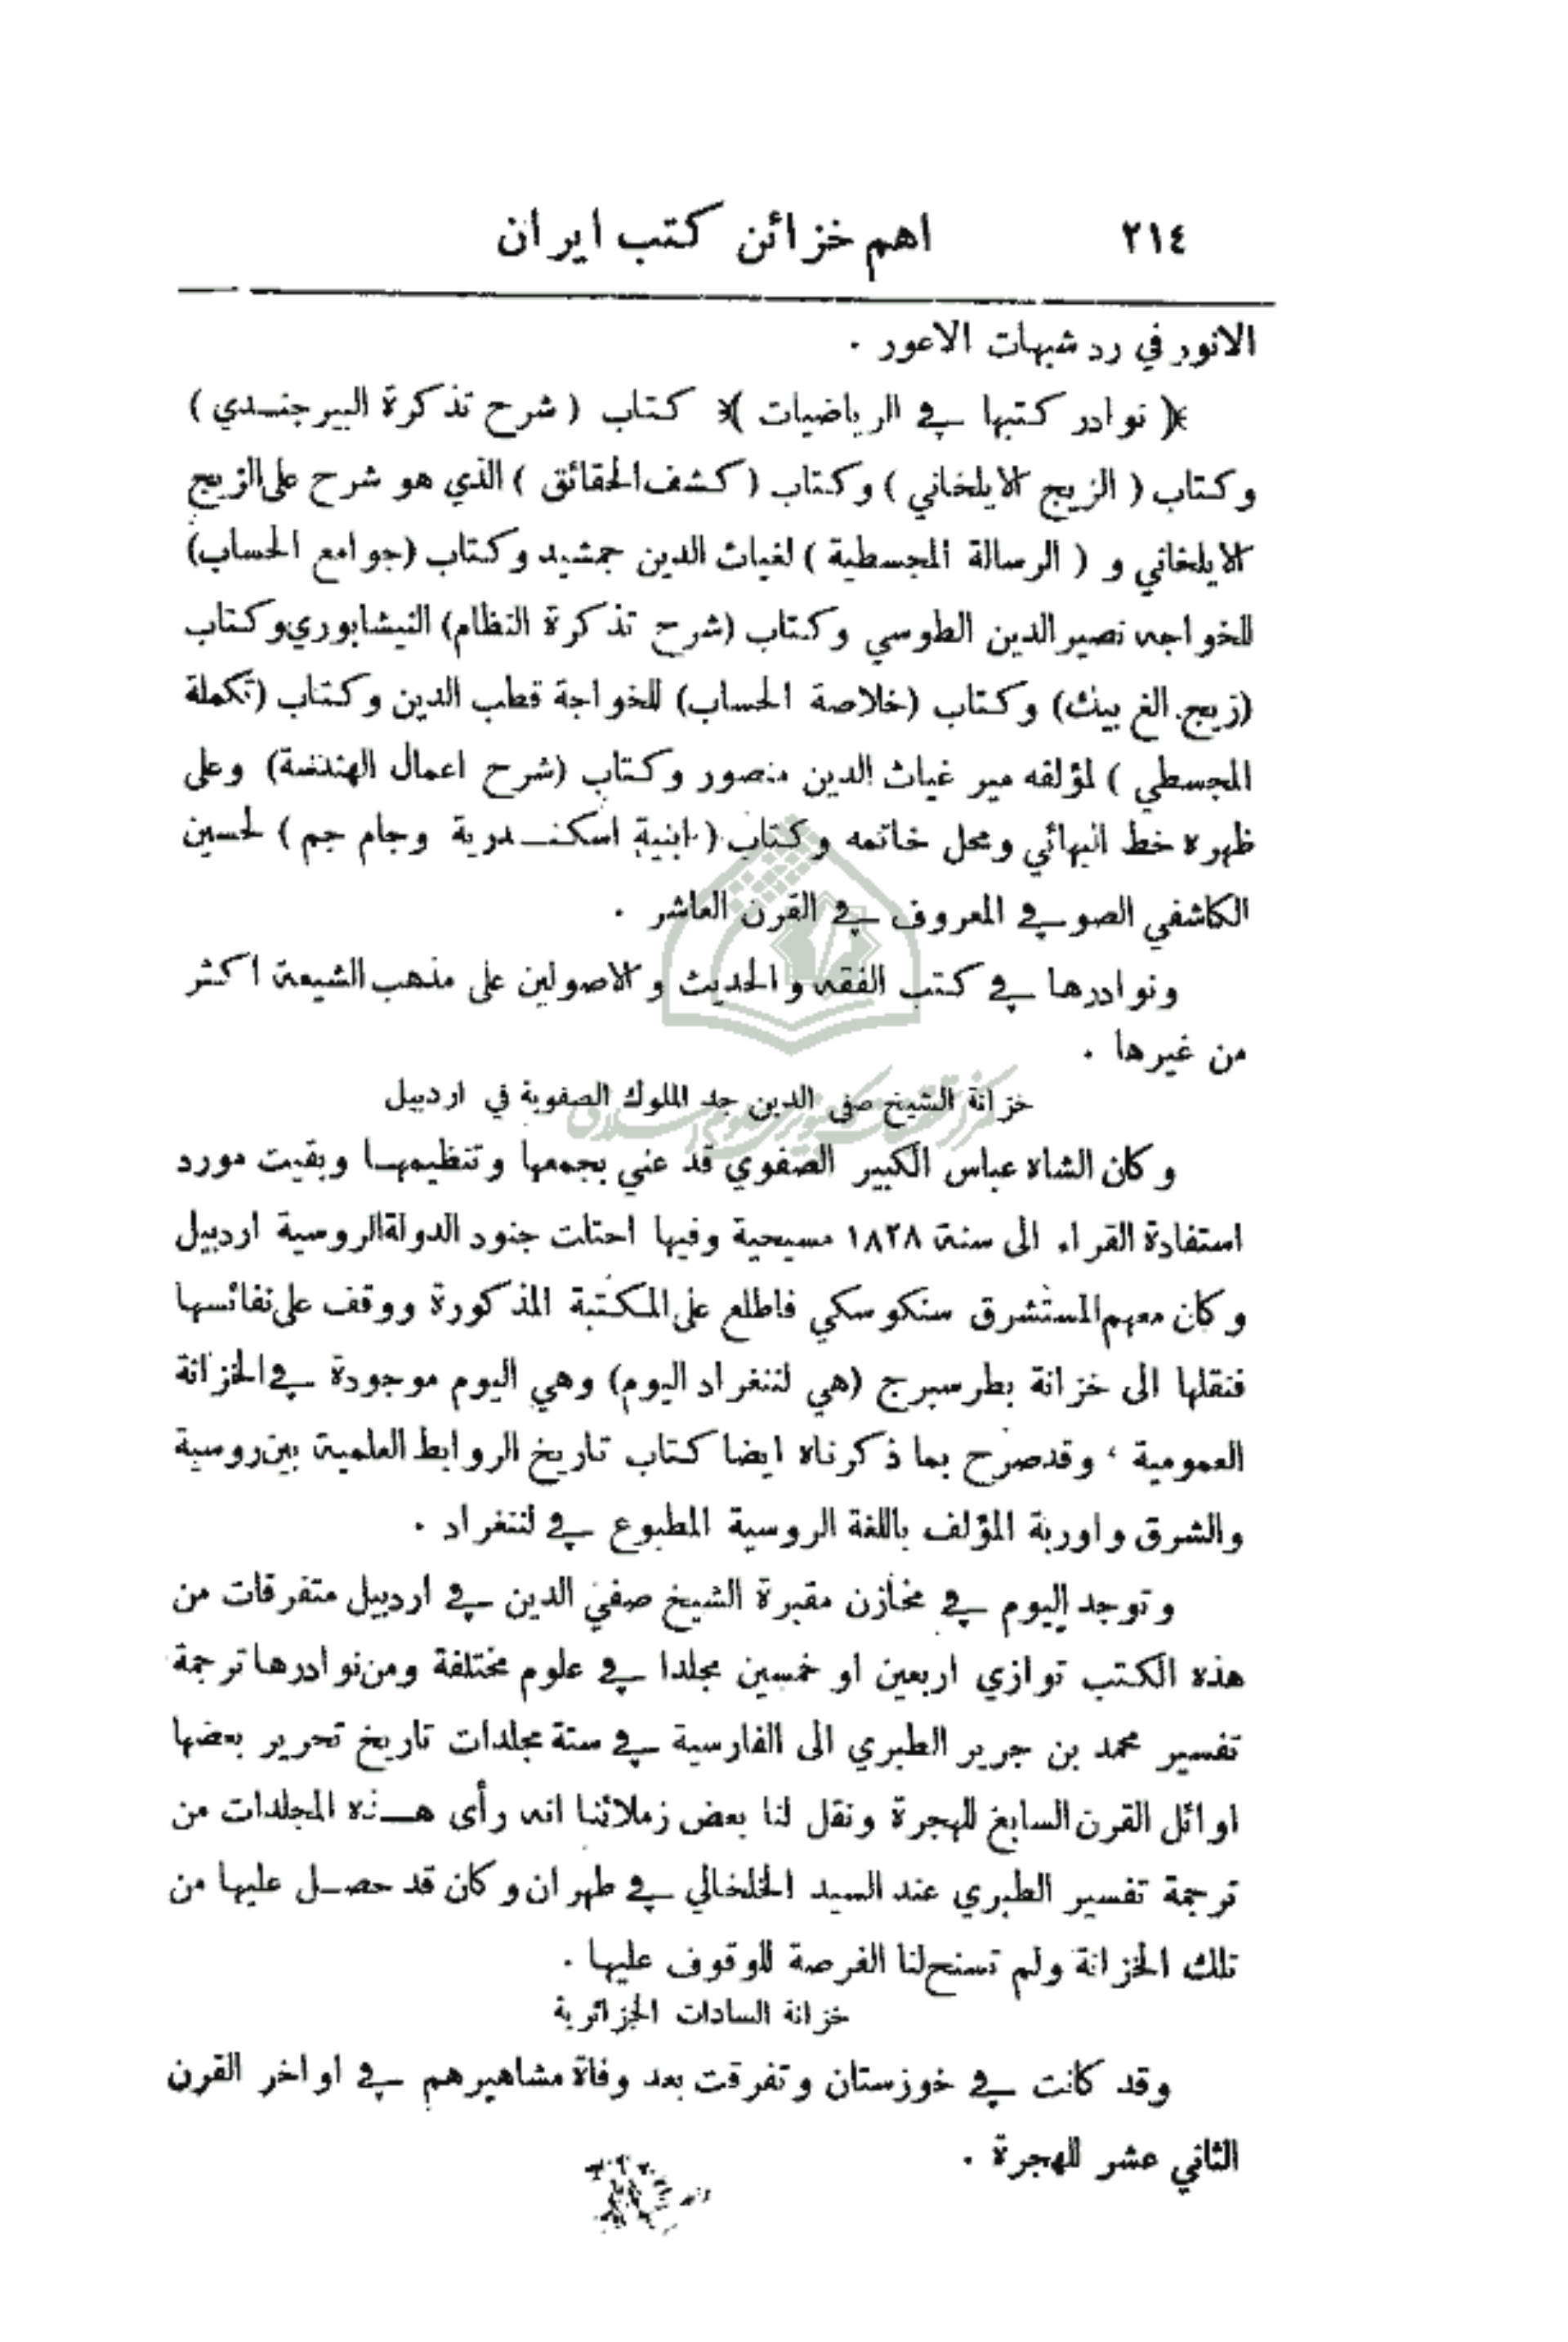 ٢١٤ اهم خزائن كتب ايران
الانور في رد شبهات الاعور .
﴿ نوادر كتبها في الرياضيات ﴾ كتاب ( شرح تذكرة البيرجندي )
وكتاب ( الزيج الايلخاني ) وكتاب ( كشف الحقائق ) الذي هو شرح على الزيج
الايلخاني و ( الرسالة المجسطية ) لغياث الدين جمشيد وكتاب (جوامع الحساب)
للخواجه نصير الدين الطوسي وكتاب (شرح تذكرة النظام) النيشابوري وكتاب
(زيج الغ بيك) وكتاب (خلاصة الحساب) للخواجة قطب الدين وكتاب (تكملة
المجسطي ) لمؤلفه مير غياث الدين منصور وكتاب (شرح اعمال الهندسة) وعلى
ظهره خط البهائي ومحل خاتمه وكتاب ( ابنية اسكندرية وجام جم ) لحسين
الكاشفي الصوفي المعروف في القرن العاشر .
ونوادرها في كتب الفقه والحديث والاصولين على مذهب الشيعة اكثر
من غيرها .
خزانة الشيخ صفي الدين جد الملوك الصفوية في اردبيل
وكان الشاه عباس الكبير الصفوي قد عني بجمعها وتنظيمها وبقيت مورد
استفادة القراء الى سنة ١٨٢٨ مسيحية وفيها احتلت جنود الدولة الروسية اردبيل
وكان معهم المستشرق سنكوسكي فاطلع على المكتبة المذكورة ووقف على نفائسها
فنقلها الى خزانة بطرسبرج (هي لننغراد اليوم) وهي اليوم موجودة في الخزانة
العمومية ، وقد صرح بما ذكرناه ايضا كتاب تاريخ الروابط العلمية بين روسية
والشرق واوربة المؤلف باللغة الروسية المطبوع في لننغراد .
وتوجد اليوم في مخازن مقبرة الشيخ صفي الدين في اردبيل متفرقات من
هذه الكتب توازي اربعين او خمسين مجلدا في علوم مختلفة ومن نوادرها ترجمة
تفسير محمد بن جرير الطبري الى الفارسية في ستة مجلدات تاريخ تحرير بعضها
اوائل القرن السابع للهجرة ونقل لنا بعض زملائنا انه رأى هذه المجلدات من
ترجمة تفسير الطبري عند السيد الخلخالي في طهران وكان قد حصل عليها من
تلك الخزانة ولم تسنح لنا الفرصة للوقوف عليها .
خزانة السادات الجزائرية
وقد كانت في خوزستان وتفرقت بعد وفاة مشاهيرهم في اواخر القرن
الثاني عشر للهجرة .